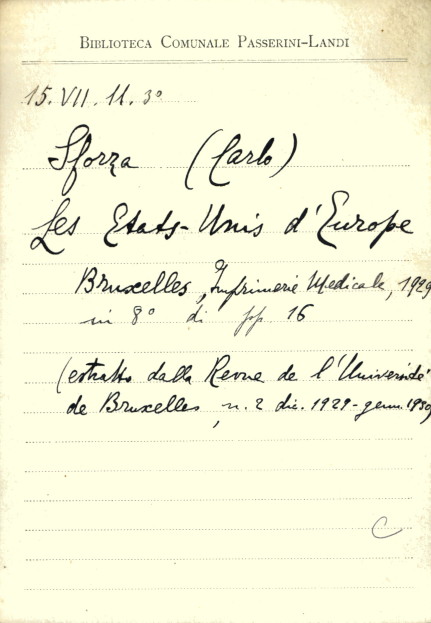 BIBLIOTECA COMUNALE PASSERINI-LANDI
15. VII. 11. 3º
Sforza (Carlo)
Les Etats-Unis d'Europe
Bruxelles, Imprimerie Medicale, 1929
in 8º di pp. 16
(estratto dalla Revue de l'Université
de Bruxelles, n. 2 dic. 1929 - genn. 1930)
C